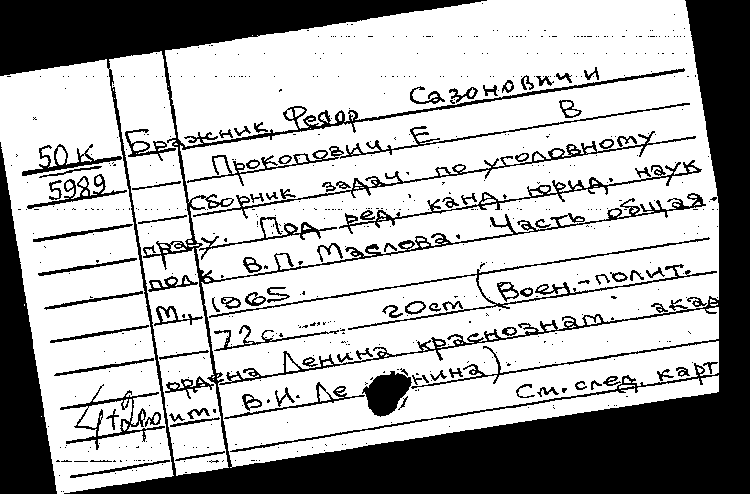 Бражник, Федор Сазонович и
50К Прокопович, Е В
5989 Сборник задач. по уголовному
праву. Под ред. канд. юрид. наук
полк. В.П. Маслова. Часть общая.
М., 1965.
72с. — 20см (Воен.-полит.
ордена Ленина краснознам. акад
им. В.И. Ленина).
См. след. карт